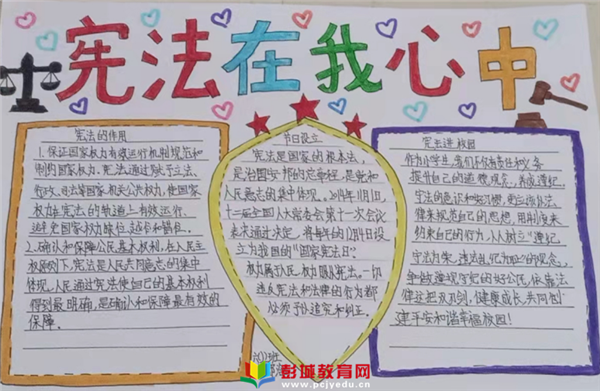 宪法在我心中
宪法的作用
1.保证国家权力有效运行机制规范和
制约国家权力。宪法通过赋予立法、
行政、司法等国家机关公共权力,使国家
权力在宪法的轨道上有效运行,
避免国家权力缺位、越位和错位。
2.确认和保障公民基本权利,在人民主
权原则下,宪法是人民共同意志的集中
体现,人民通过宪法使自己的基本权利
得到最明确,是确认和保障最有效的
保障。
节日设立
宪法是国家的根本法,
是治国安邦的总章程,是党和
人民意志的集中体现。2014年11月1日,
十二届全国人大常委会第十一次会议
表决通过决定,将每年的12月4日设
立为我国的“国家宪法日”。
权力属于人民,权力服从宪法。一切
违反宪法和法律的行为都
必须予以追究和纠正。
宪法进校园
作为小学生,我们亦有责任和义务
提升自己的道德观念,
守法的意识和好习惯,
律来规范自己的思想,用制度来
约束自己的行为,人人树立“遵纪
守法为荣、违法乱纪为耻”的观念,
争做遵规守纪的好公民,依靠法
律这把双刃剑,健康成长,共同创
建平安和谐幸福校园!
彭城教育网
www.pcjyedu.cn